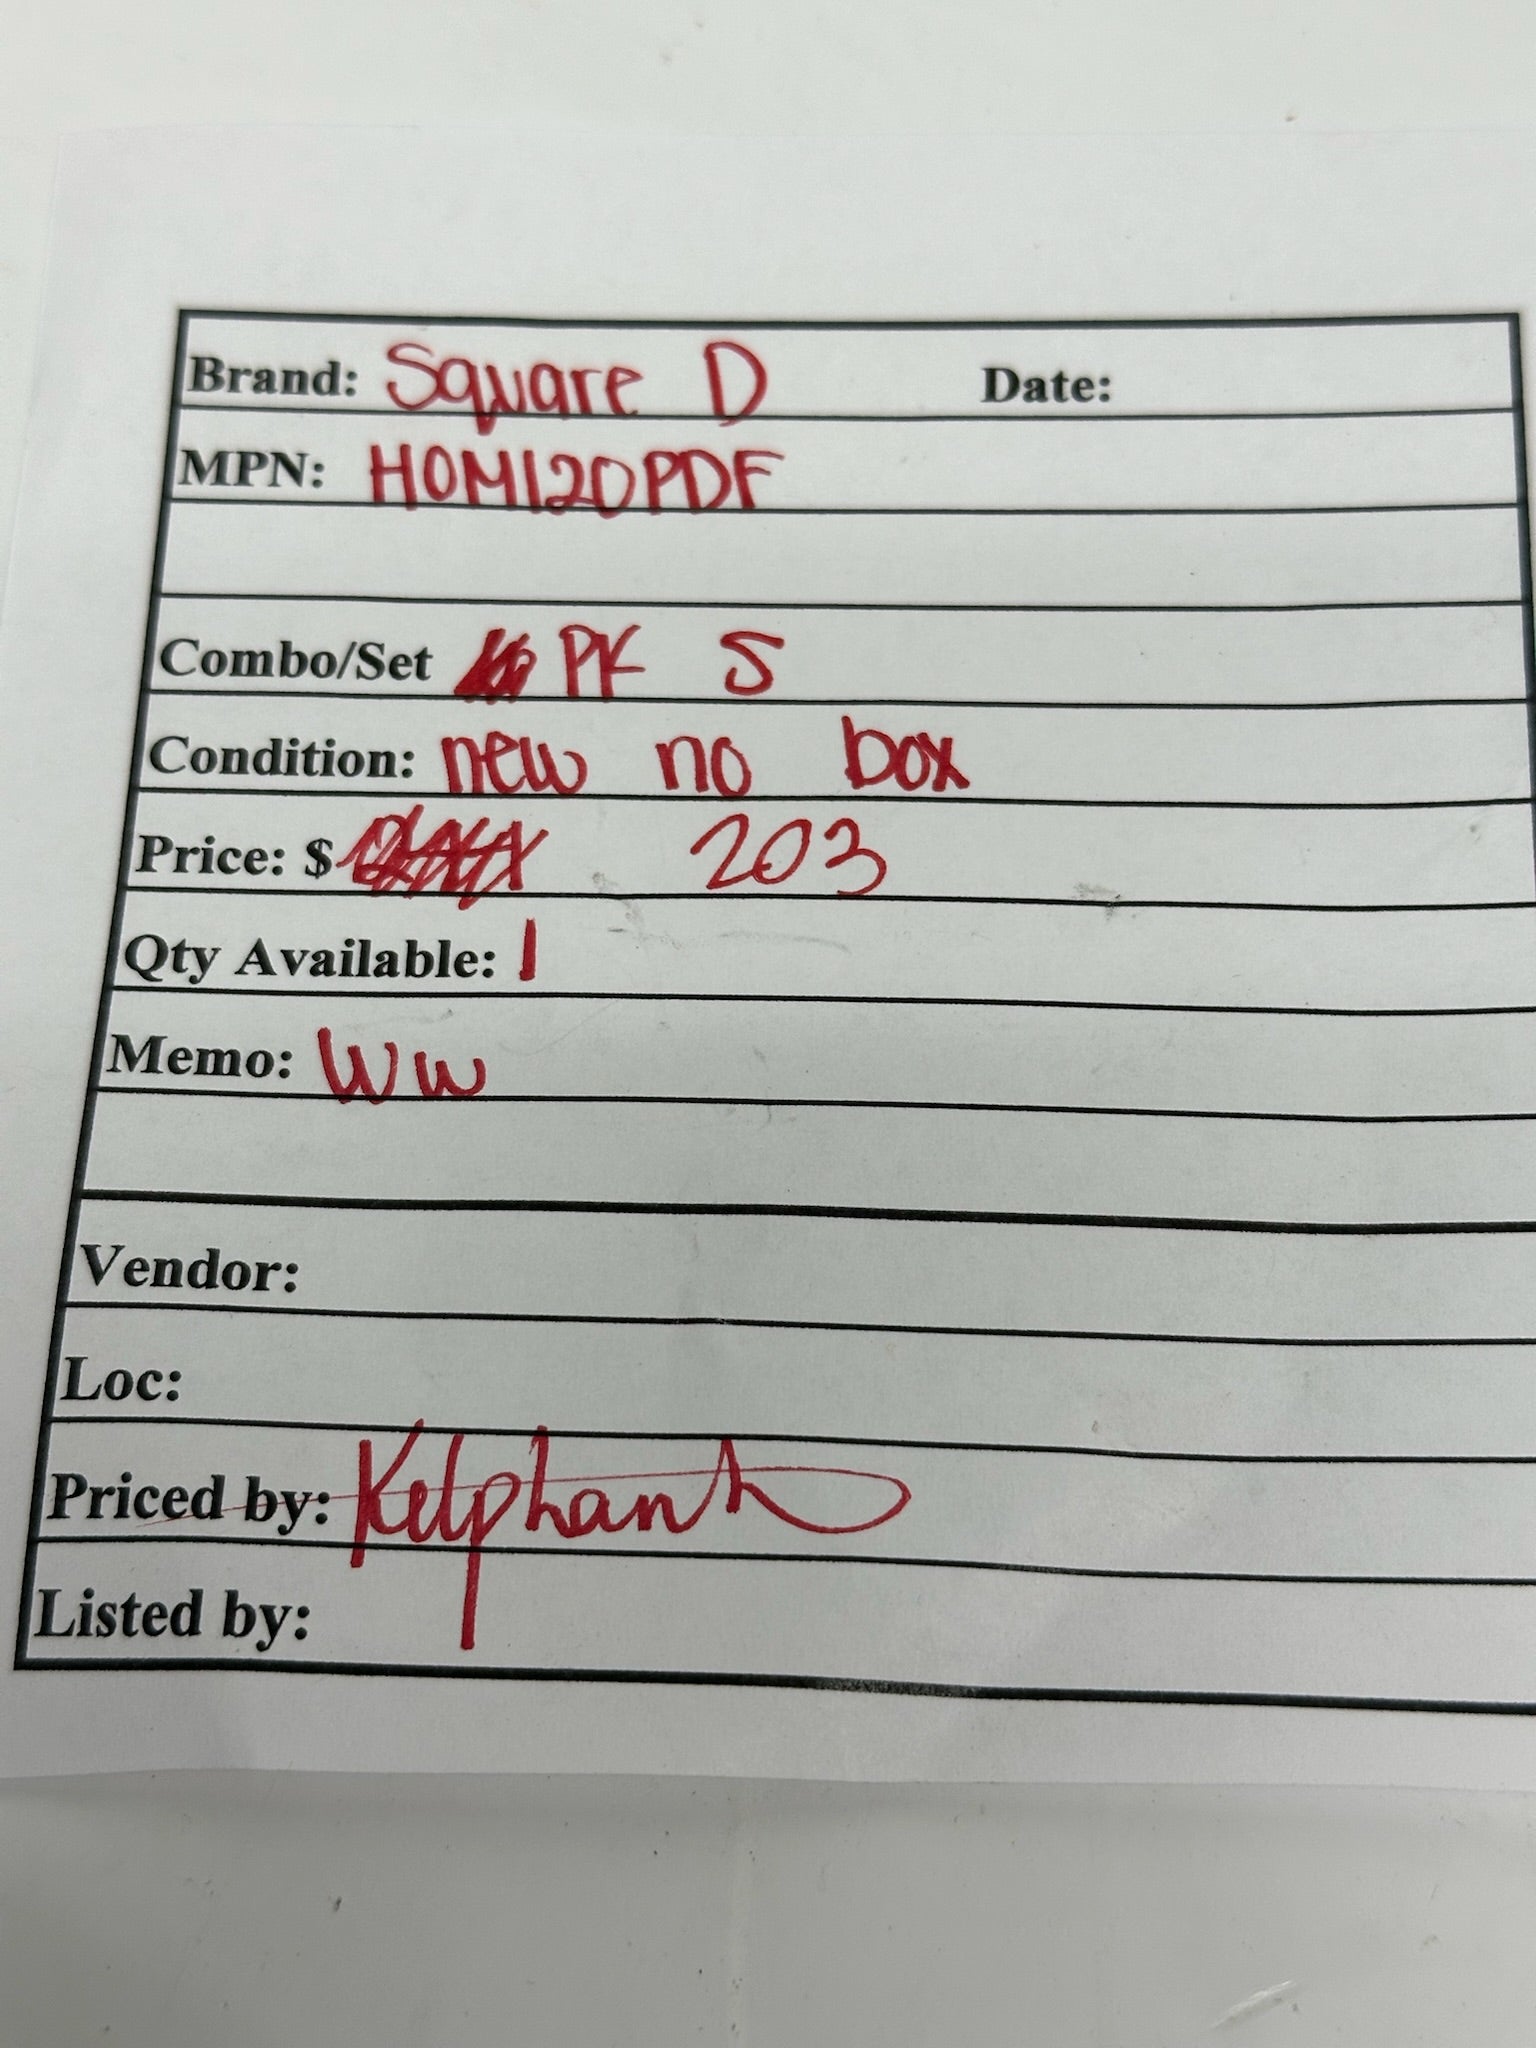 Brand: Square D Date:
MPN: HOM120PDF
Combo/Set PK 5
Condition: new no box
Price: $ 203
Qty Available: 1
Memo: WW
Vendor:
Loc:
Priced by: Kelphant
Listed by: